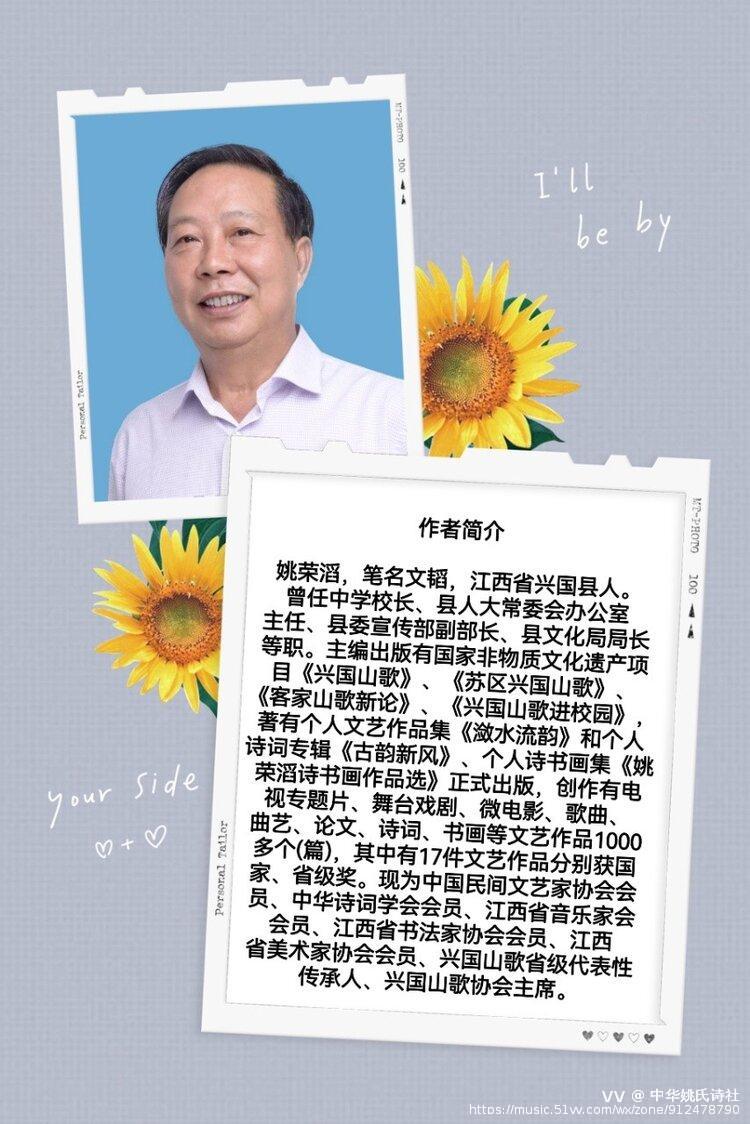 MT-PHOTO 100
I'll
be by
Personal Tailor
作者简介
姚荣滔，笔名文韬，江西省兴国县人。
曾任中学校长、县人大常委会办公室
主任、县委宣传部副部长、县文化局局长
等职。主编出版有国家非物质文化遗产项
目《兴国山歌》、《苏区兴国山歌》、
《客家山歌新论》、《兴国山歌进校园》，
著有个人文艺作品集《潋水流韵》和个人
诗词专辑《古韵新风》、个人诗书画集《姚
荣滔诗书画作品选》正式出版，创作有电
视专题片、舞台戏剧、微电影、歌曲、
曲艺、论文、诗词、书画等文艺作品1000
多个(篇)，其中有17件文艺作品分别获国
家、省级奖。现为中国民间文艺家协会会
员、中华诗词学会会员、江西省音乐家会
会员、江西省书法家协会会员、江西
省美术家协会会员、兴国山歌省级代表性
传承人、兴国山歌协会主席。
MT-PHOTO 100
your side
Personal Tailor
VV @ 中华姚氏诗社
https://music.51vv.com/wx/zone/912478790